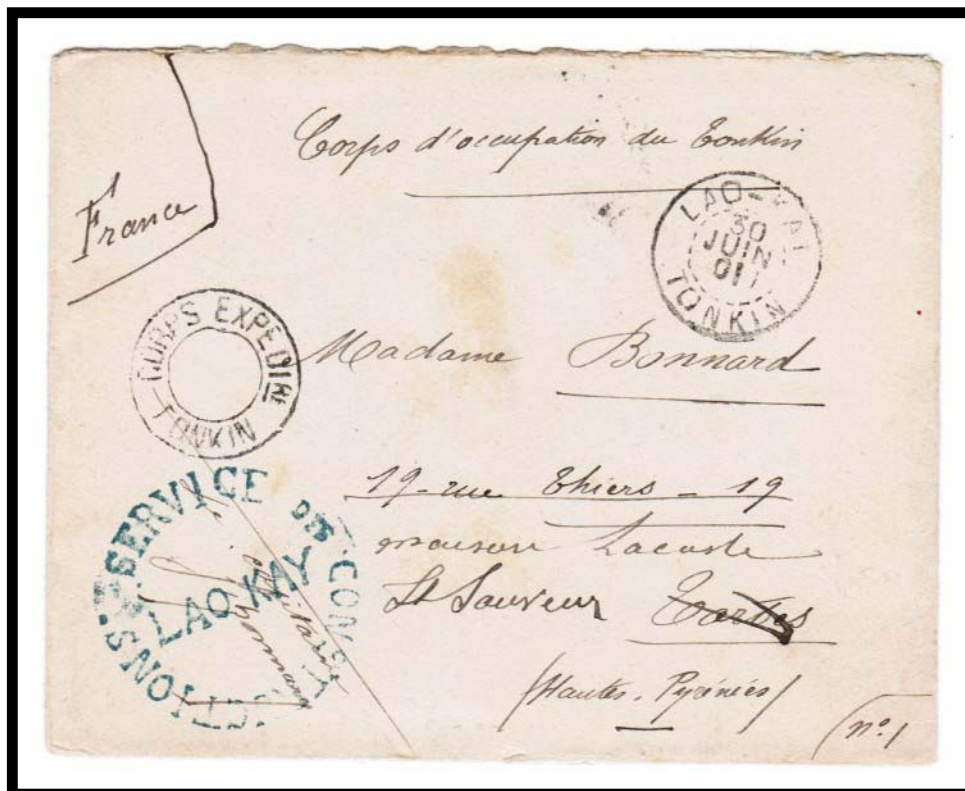 Corps d'occupation du Tonkin
France
LAO-KAI
30
JUIN
01
TONKIN
CORPS EXPEDIRE
TONKIN
Madame Bonnard
19 - rue Thiers - 19
maison Lacoste
St Sauveur Tarbes
(Hautes-Pyrénées)
SERVICE DES CONSTRUCTIONS
LAO KAY
Le capitaine
n° 1